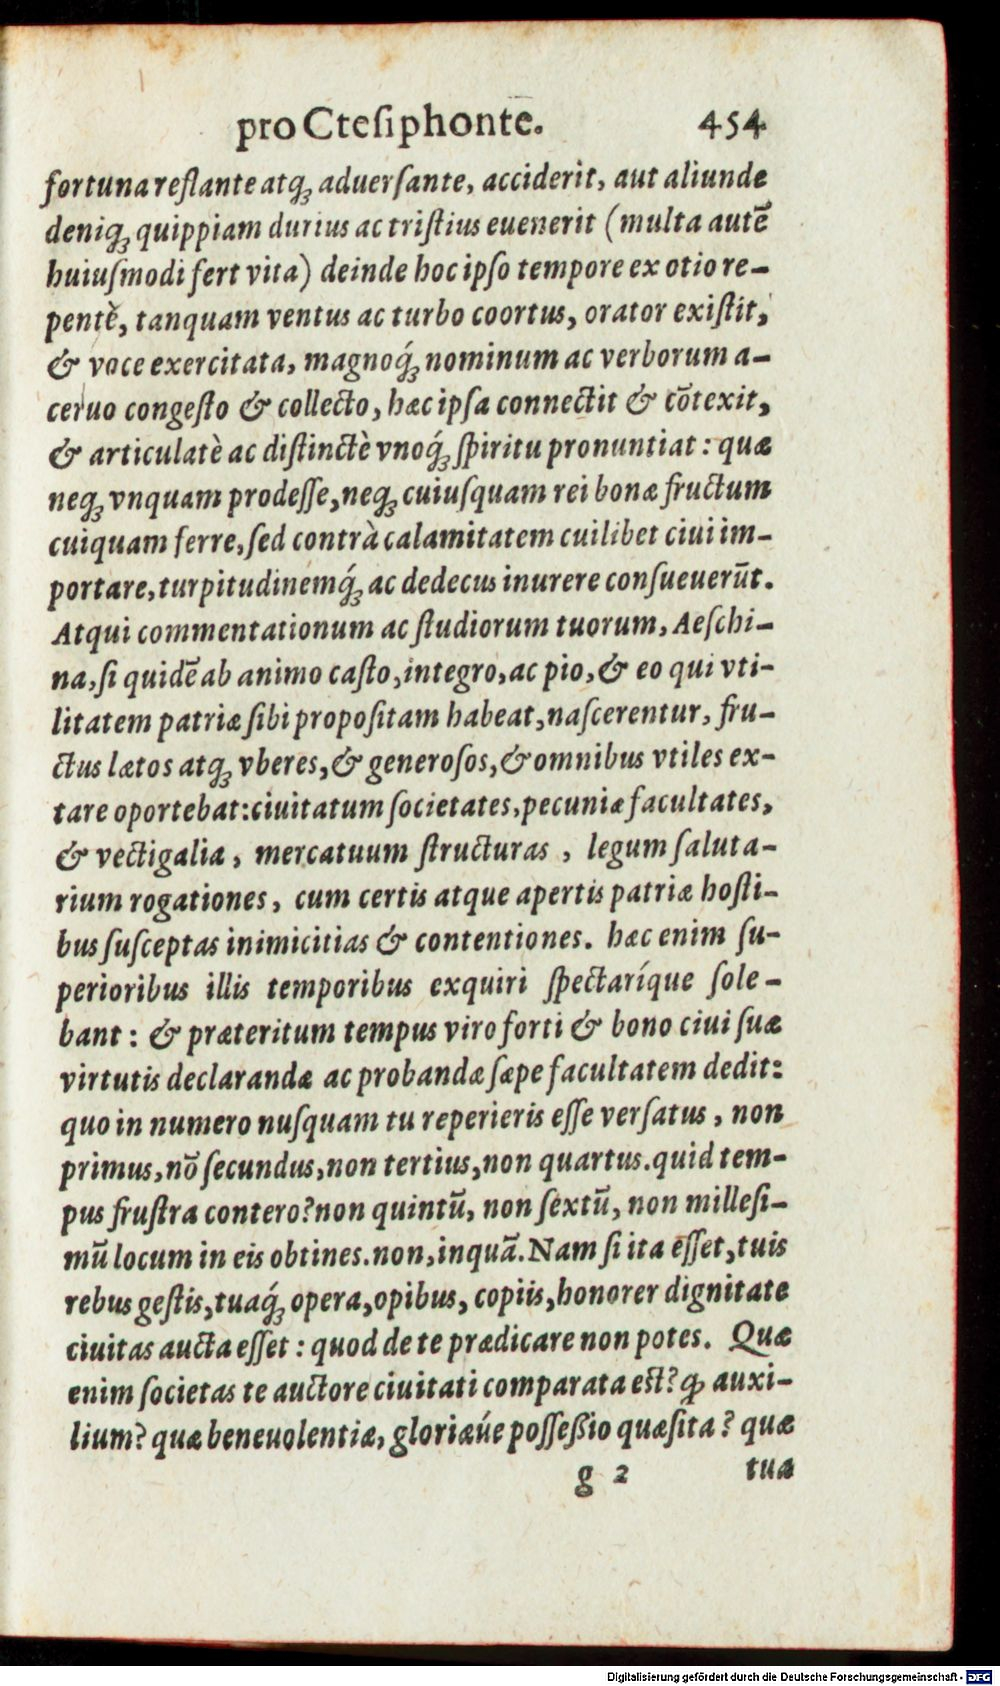 pro Cteſiphonte. 454
fortuna reflante atqꝫ aduerſante, acciderit, aut aliunde
deniqꝫ quippiam durius ac triſtius euenerit (multa autē
huiuſmodi fert vita) deinde hoc ipſo tempore ex otio re-
pentè, tanquam ventus ac turbo coortus, orator exiſtit,
& voce exercitata, magnoq́ꝫ nominum ac verborum a-
ceruo congeſto & collecto, hæc ipſa connectit & cōtexit,
& articulatè ac diſtinctè vnoq́ꝫ ſpiritu pronuntiat: quæ
neqꝫ vnquam prodeſſe, neqꝫ cuiuſquam rei bonæ fructum
cuiquam ferre, ſed contrà calamitatem cuilibet ciui im-
portare, turpitudinemq́ꝫ ac dedecus inurere conſueuerūt.
Atqui commentationum ac ſtudiorum tuorum, Aeſchi-
na, ſi quidē ab animo caſto, integro, ac pio, & eo qui vti-
litatem patriæ ſibi propoſitam habeat, naſcerentur, fru-
ctus lætos atqꝫ vberes, & generoſos, & omnibus vtiles ex-
tare oportebat: ciuitatum ſocietates, pecuniæ facultates,
& vectigalia, mercatuum ſtructuras, legum ſaluta-
rium rogationes, cum certis atque apertis patriæ hoſti-
bus ſuſceptas inimicitias & contentiones. hæc enim ſu-
perioribus illis temporibus exquiri ſpectaríque ſole-
bant: & præteritum tempus viro forti & bono ciui ſuæ
virtutis declarandæ ac probandæ ſæpe facultatem dedit:
quo in numero nuſquam tu reperieris eſſe verſatus, non
primus, nō ſecundus, non tertius, non quartus. quid tem-
pus fruſtra contero? non quintū, non ſextū, non milleſi-
mū locum in eis obtines. non, inquā. Nam ſi ita eſſet, tuis
rebus geſtis, tuaq́ꝫ opera, opibus, copiis, honore r dignitate
ciuitas aucta eſſet: quod de te prædicare non potes. Quæ
enim ſocietas te auctore ciuitati comparata eſt? ꝙ auxi-
lium? quæ beneuolentiæ, gloriæúe poſſeßio quæſita? quæ
g 2 tua
Digitalisierung gefördert durch die Deutsche Forschungsgemeinschaft - DFG